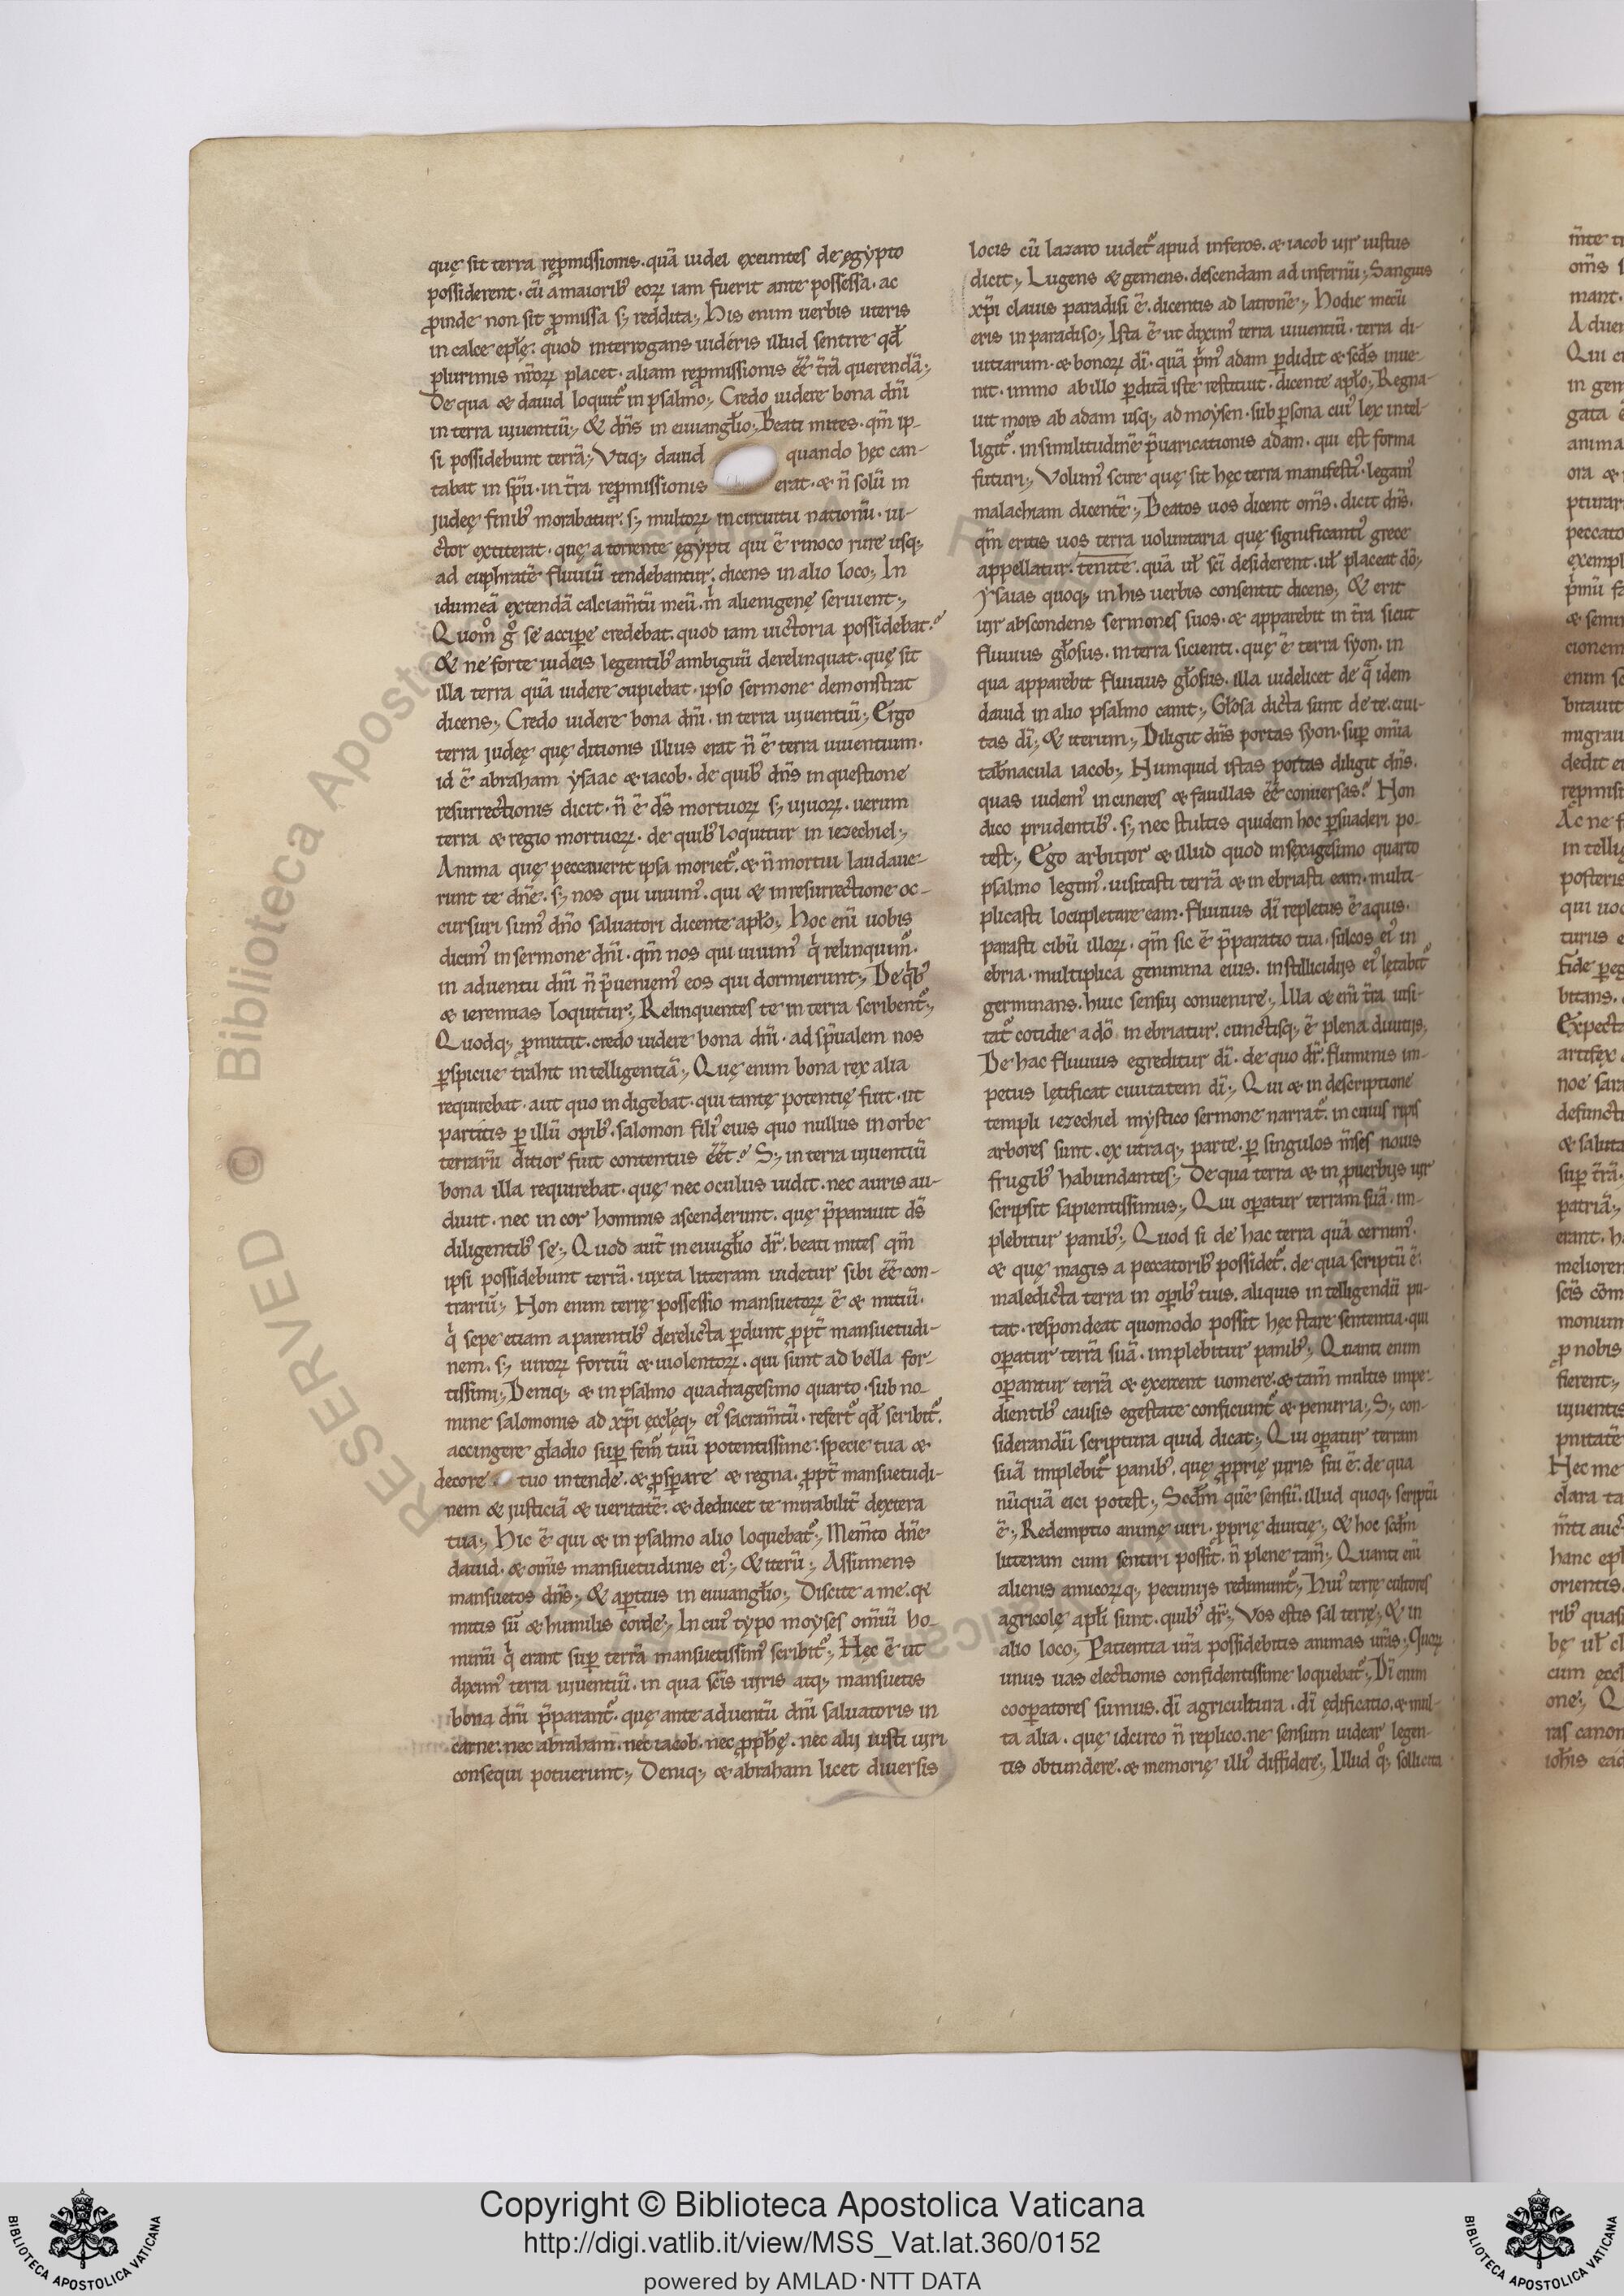 quę sit terra rep̄missionis. quā iudei exeuntes de ęgypto
possiderent. cū a maiorib; eoꝝ iam fuerit ante possessa. ac
ꝓinde non sit ꝓmissa sꝫ reddita; His enim uerbis uteris
in calce epłę: quod interrogans uidéris illud sentire qđ
plurimis nr̄oꝝ placet. aliam rep̄missionis eē̄ tr̄ā querendā;
De qua & dauid loquit᷑ in psalmo; Credo uidere bona dn̄i
in terra uiuentiū; & dn̄s in euuangl̄io; Beati mites. qm̄ ip-
si possidebunt terrā; Vtiq; dauid quando hęc can-
tabat in sp̄u. in tr̄a rep̄missionis erat. & n̄ solū in
judeę finib; morabatur. sꝫ multoꝝ in circuitu nationū. ui-
ctor extiterat. quę a torrente ęgypti qui ē rinoco rure usq;
ad euphratē fluuiū tendebantur. dicens in alio loco; In
idumeā extendā calciam̄tū meū. m̍ alienigenę seruient;
Quom̊ g̊ se accipe credebat. quod iam uictoria possidebat?
& ne forte iudeis legentib; ambiguū derelinquat. quę sit
illa terra quā uidere cupiebat. ipso sermone demonstrat
dicens; Credo uidere bona dn̄i. in terra uiuentiū; Ergo
terra judeę quę ditionis illius erat n̄ ē terra uiuentium.
id ē abraham ysaac & iacob. de quib; dn̄s in questione
resurrectionis dicit. n̄ ē ds̄ mortuoꝝ sꝫ uiuoꝝ. uerum
terra & regio mortuoꝝ. de quib; loquitur in iezechiel;
Anima quę peccauerit ipsa moriet᷑. & n̄ mortui laudaue-
runt te dn̄e. sꝫ nos qui uiuim᷒. qui & in resurrectione oc-
cursuri sum᷒ dn̄o saluatori dicente apło; Hoc enī uobis
dicim᷒ in sermone dn̄i. qm̄ nos qui uiuim᷒ q̍ relinquim᷑.
in aduentu dn̄i n̄ p̄ueniem᷒ eos qui dormierunt; De q̍b;
& ieremias loquitur; Relinquentes te in terra scribent᷑;
Quodq; ꝓmittit. credo uidere bona dn̄i. ad sp̄ualem nos
ꝑspicue trahit intelligentiā; Quę enim bona rex alia
requirebat. aut quo indigebat. qui tantę potentię fuit. ut
partitis ꝑ illū opib;. salomon fili᷒ eius quo nullus in orbe
terrarū ditior fuit contentus eēt? Sꝫ in terra uiuentiū
bona illa requirebat. quę nec oculus uidit. nec auris au-
diuit. nec in cor hominis ascenderunt. quę p̄parauit ds̄
diligentib; se; Quod aut̄ in euugl̄io dr̄. beati mites qm̄
ipsi possidebunt terrā. iuxta litteram uidetur sibi eē̄ con-
trariū; Non enim terrę possessio mansuetoꝝ ē & mitiū.
q̍ sepe etiam a parentib; derelicta ꝑdunt ꝓpt̄ mansuetudi-
nem. sꝫ uiroꝝ fortiū & uiolentoꝝ. qui sunt ad bella for-
tissimi; Deniq; & in psalmo quadragesimo quarto. sub no-
mine salomonis ad xp̄i ęccłęq; ei᷒ sacram̄tū. refert᷑ qđ scribit᷑.
accingere gladio suꝑ fem᷑ tuū potentissime. specie tua &
decore tuo intende. & ꝓspare & regna. ꝓpt̄ mansuetudi-
nem & justiciā & ueritatē. & deducet te mirabilit̄ dextera
tua; Hic ē qui & in psalmo alio loquebat᷑; Mem̄to dn̄e
dauid. & om̄is mansuetudinis ei᷒; & iterū; Assumens
mansuetos dn̄s; & aꝑtius in euuangl̄io; Discite a me. qꝛ
mitis sū & humilis corde; In cui᷒ typo moyses om̄iū ho-
minū q̍ erant suꝑ terrā mansuetissim᷒ scribit᷑; Hęc ē ut
dixim᷒ terra uiuentiū. in qua sc̄is uiris atq; mansuetis
bona dn̄i p̄parant᷑. quę ante aduentū dn̄i saluatoris in
carne. nec abraham. nec iacob. nec ꝓphę. nec alij iusti uiri
consequi potuerunt; Deniq; & abraham licet diuersis
locis cū lazaro uidet᷑ apud inferos. & iacob uir iustus
dicit; Lugens & gemens. descendam ad infernū; Sanguis
xp̄i clauis paradisi ē. dicentis ad latronē; Hodie mecū
eris in paradiso; Ista ē ut diximꝰ terra uiuentiū. terra di-
uitiarum. & bonoꝝ dī. quā p̍m᷒ adam ꝑdidit & scds̄ inue-
nit. immo ab illo ꝑditā iste restituit. dicente apło; Regna-
uit mors ab adam usq; ad moysen. sub ꝑsona cui᷒ lex intel-
ligit᷑. in similitudinē p̄uaricationis adam. qui est forma
futuri; Volum᷒ scire quę sit hęc terra manifesti᷒. legam᷒
malachiam dicentē; Beatos uos dicent om̄s. dicit dn̄s.
qm̄ eritis uos terra uoluntaria quę significanti᷒ grece
appellatur. tenite. quā ul̄ sc̄i desiderent. ul̄ placeat dō;
ysaias quoq; in his uerbis consentit dicens; & erit
uir abscondens sermones suos. & apparebit in tr̄a sicut
fluuius gl̄osus. in terra sicienti. quę ē terra syon. in
qua apparebit fluuius gl̄osus. illa uidelicet de qͣ idem
dauid in alio psalmo canit; Gl̄osa dicta sunt de te. ciui-
tas dī; & iterum; Diligit dn̄s portas syon. suꝑ om̄ia
tab̄nacula iacob; Numquid istas portas diligit dn̄s.
quas uidem᷒ in cineres & fauillas eē̄ conuersas? Non
dico prudentib;. sꝫ nec stultis quidem hoc ꝑsuaderi po-
test; Ego arbitror & illud quod in sexagesimo quarto
psalmo legim᷒. uisitasti terrā & inebriasti eam. multi-
plicasti locupletare eam. fluuius dī repletus ē aquis.
parasti cibū illoꝝ. qm̄ sic ē p̄paratio tua. sulcos ei᷒ in
ebria. multiplica genimina eius. in stillicidijs ei᷒ lętabit᷑
germinans. huic sensui conuenire; Illa & enī tr̄a uisi-
tat᷑ cotidie a dō. inebriatur. cunctisq; ē plena diuitijs;
De hac fluuius egreditur dī. de quo dr̄. fluminis im-
petus lętificat ciuitatem dī; Qui & in descriptione
templi iezechiel mystico sermone narrat᷑. in cuius ripis
arbores sunt. ex utraq; parte. ꝑ singulos m̄ses nouis
frugib; habundantes; De qua terra & in ꝓuerbijs uir
scripsit sapientissimus; Qui oꝑatur terram suā. im-
plebitur panib;; Quod si de hac terra quā cernim᷒.
& quę magis a peccatorib; possidet᷑. de qua scriptū ē.
maledicta terra in oꝑib; tuis. aliquis intelligendū pu-
tat. respondeat quomodo possit hęc stare sententia. qui
oꝑatur terrā suā. implebitur panib;; Quanti enim
oꝑantur terrā & exercent uomere. & tam̄ multis impe-
dientib; causis egestate conficiunt᷑ & penuria; Sꝫ con-
siderandū scriptura quid dicat; Qui oꝑatur terram
suā implebit᷑ panib;. quę ꝓprię iuris sui ē. de qua
nūquā eici potest; Scdm̄ quē sensū. illud quoq; scriptū
ē; Redemptio animę uiri. ꝓprię diuitię; & hoc scdm̄
litteram cum sentiri possit. n̄ plene tam̄; Quanti enī
alienis amicoꝝq; pecunijs redimunt᷑; Hui᷒ terrę cultores
agricolę apłi sunt. quib; dr̄; Vos estis sal terrę; & in
alio loco; Patientia ur̄a possidebitis animas ur̄as; Quoꝝ
unus uas electionis confidentissime loquebat᷑; Dī enim
cooꝑatores sumus. dī agricultura. dī ędificatio. & mul-
ta alia. quę idcirco n̄ replico. ne sensum uidear legen-
tis obtundere. & memorię illi᷒ diffidere; Illud q̊; sollicita
Copyright © Biblioteca Apostolica Vaticana
http://digi.vatlib.it/view/MSS_Vat.lat.360/0152
powered by AMLAD·NTT DATA
BIBLIOTECA APOSTOLICA VATICANA
BIBLIOTECA APOSTOLICA VATICANA